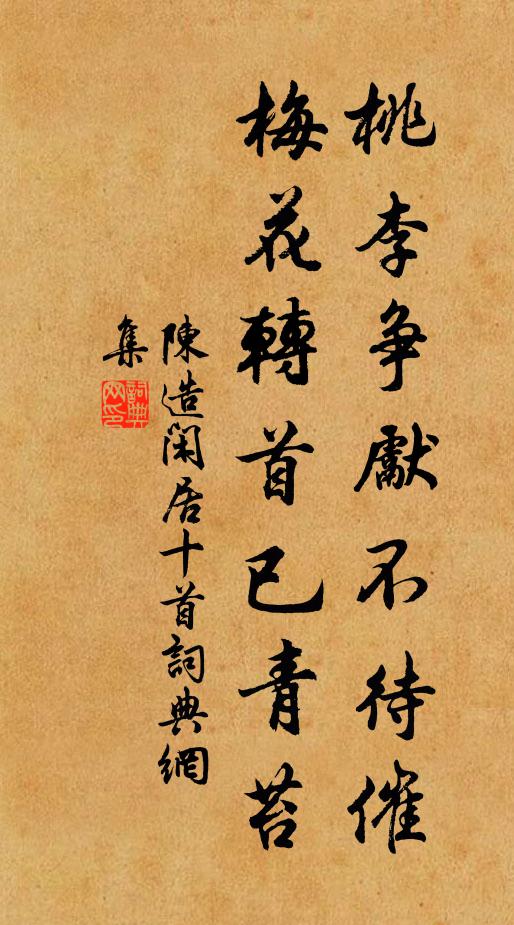 桃李争獻不待催
梅花轉首已青苔
陳造閑居十首詞典網
集
詞典
网印